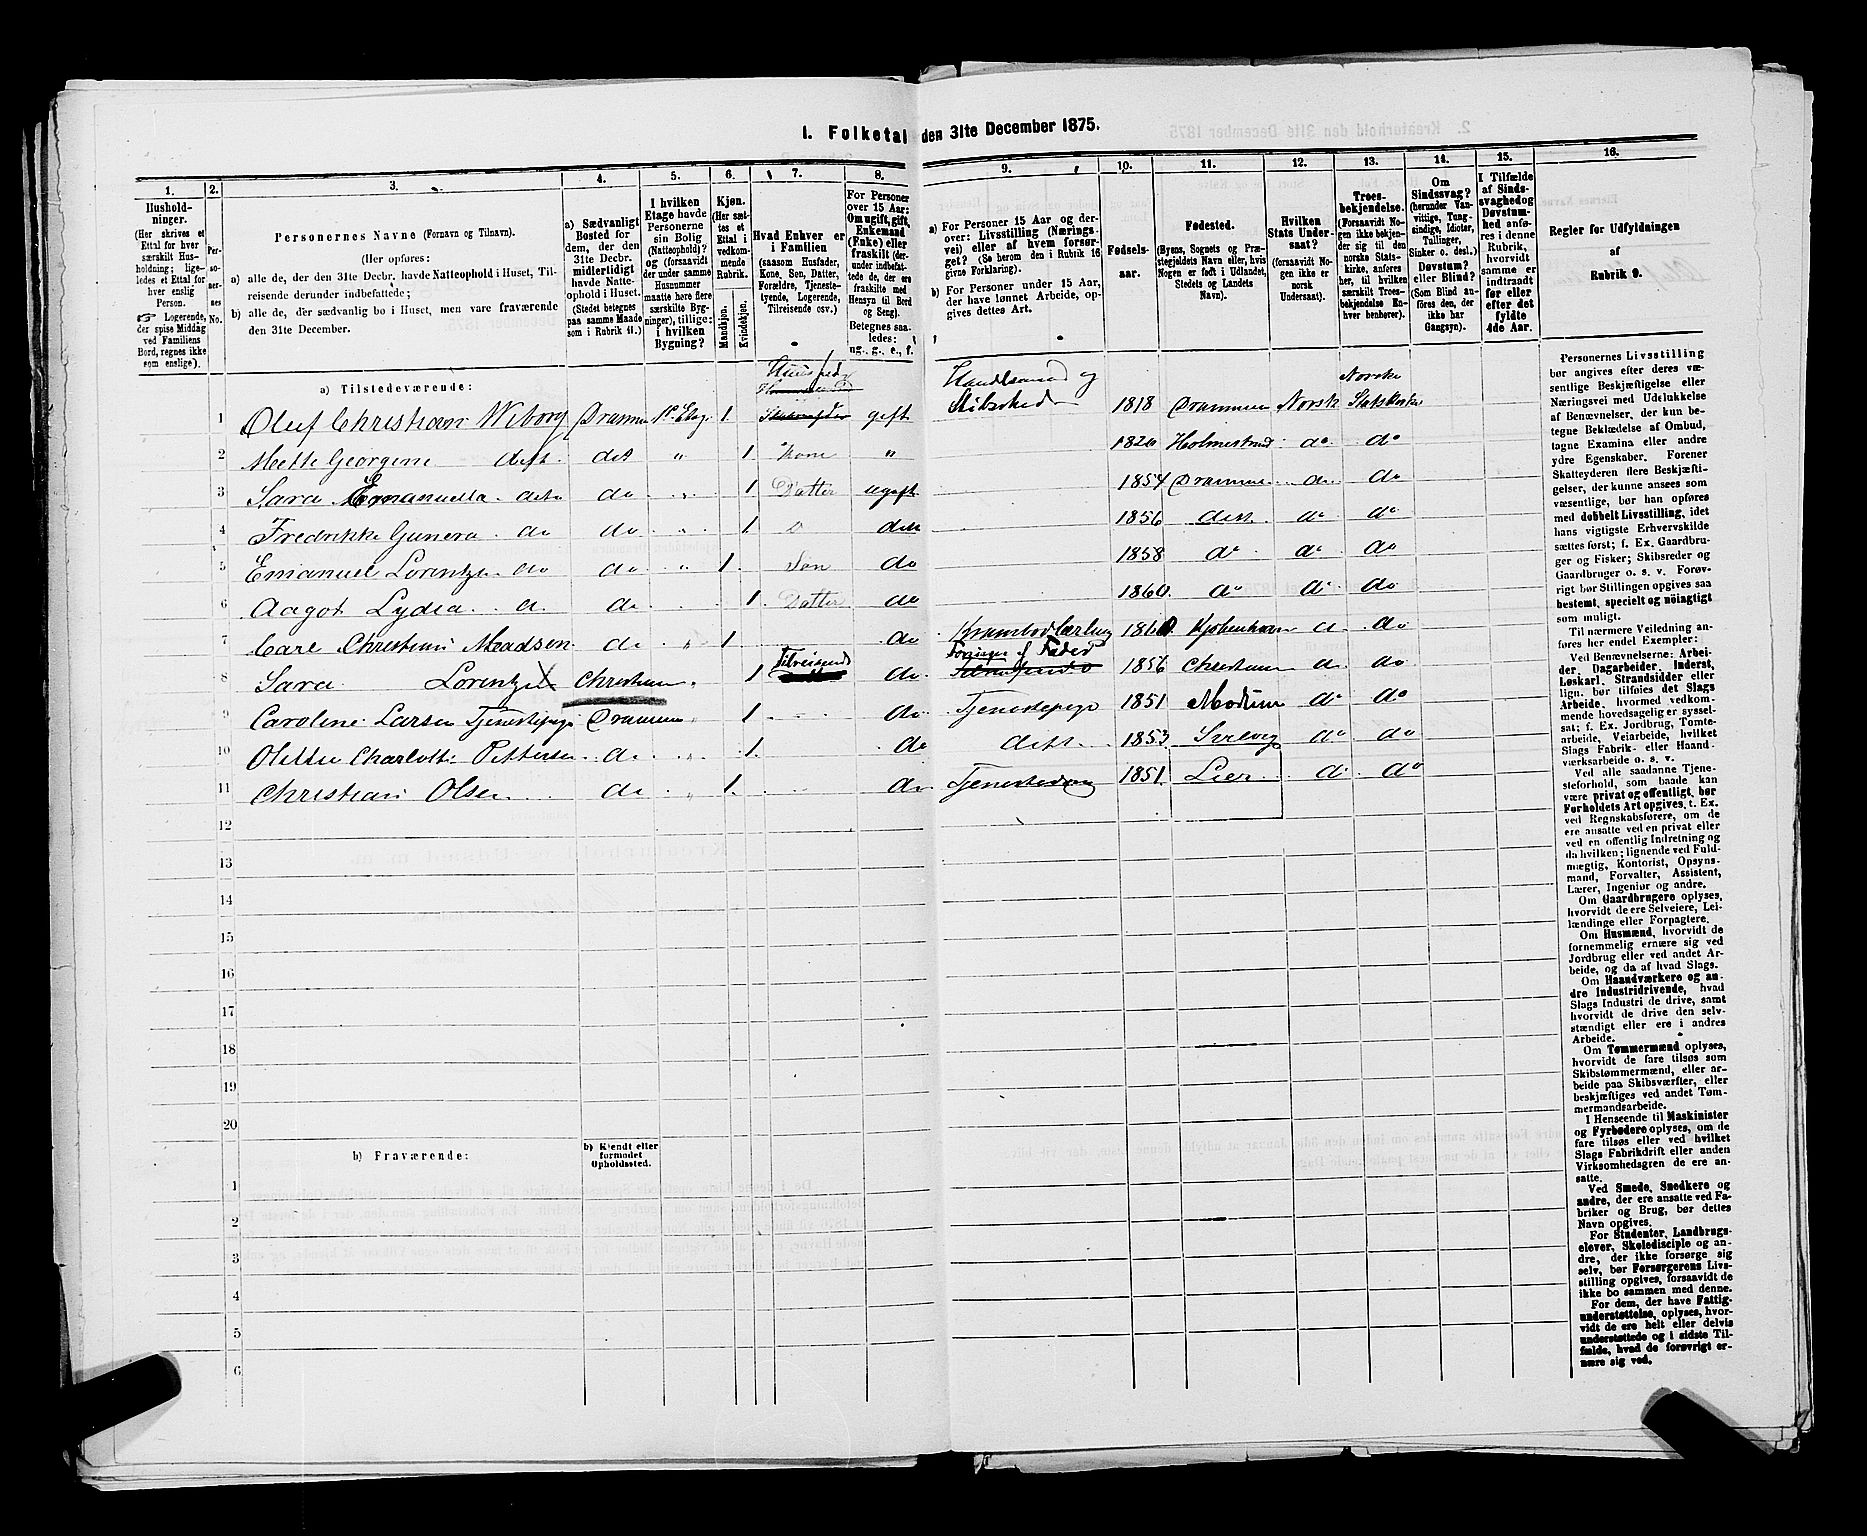 1. Folketal den 31te December 1875.
1. 2. 3. 4. 5. 6. 7. 8. 9. 10. 11. 12. 13. 14. 15. 16.
Hushold-
ninger.
(Her skrives et
Ettal for hver
særskilt Hus-
holdning; lige-
ledes et Ettal for
hver enslig
Person.
☞ Logerende,
der spise Middag
ved Familiens
Bord, regnes ikke
som enslige).
Per-
so-
ner-
nes
No.
Personernes Navne (Fornavn og Tilnavn).
(Her opføres:
a) alle de, der den 31te Decbr. havde Natteophold i Huset, Til-
reisende derunder indbefattede;
b) alle de, der sædvanlig bo i Huset, men vare fraværende
den 31te December.
a) Sædvanligt
Bosted for
dem, der den
31te Decbr.
midlertidigt
havde Natte-
ophold i Huset.
(Stedet betegnes
paa samme Maade
som i Rubrik 11.)
I hvilken
Etage havde
Personerne
sin Bolig
(Natteophold)?
og (forsaavidt
der under samme
Husnummer
maatte høre flere
særskilte Byg-
ninger), tillige:
i hvilken
Bygning?
Kjøn.
(Her sæt-
tes et
Ettal i
vedkom-
mende
Rubrik.
Mandkjøn.
Kvindekjøn.
Hvad Enhver er
i Familien
(saasom Husfader,
Kone, Søn, Datter,
Forældre, Tjeneste-
tyende, Logerende,
Tilreisende osv.)
For Personer
over 15 Aar:
Om ugift, gift,
Enkemand
(Enke) eller
fraskilt (der-
under indbefat-
tede de, der ere
fraskilte med
Hensyn til Bord
og Seng).
Betegnes saa-
ledes:
ug., g., e., f.
a) For Personer 15 Aar og der-
over: Livsstilling (Nærings-
vei) eller af hvem forsør-
get? (Se herom den i Rubrik 16
givne Forklaring).
b) For Personer under 15 Aar,
der have lønnet Arbeide, op-
gives dettes Art.
Fødsels-
aar.
Fødested.
(Byens, Sognets og Præ-
stegjeldets Navn eller, hvis
Nogen er født i Udlandet,
Stedets og Landets
Navn).
Hvilken
Stats Under-
saat?
(forsaavidt No-
gen ikke er
norsk
Undersaat).
Troes-
bekjendelse.
(Forsaavidt No-
gen ikke bekjen-
der sig til den
norske Stats-
kirke, anføres
her, til hvilken
særskilt Troes-
bekjendelse En-
hver henhører).
Om
Sindssvag?
(herunder Van-
vittige, Tung-
sindige, Idioter,
Tullinger,
Sinker o. desl.)
Døvstum?
eller Blind?
(Som Blind an-
føres den, der
ikke har
Gangsyn).
I Tilfælde
af Sinds-
svaghed og
Døvstum-
hed anfø-
res i denne
Rubrik,
hvorvidt
samme er
indtraadt
før eller
efter det
fyldte
4de Aar.
Regler for Udfyldningen
af
Rubrik 9.
a) Tilstedeværende:
1 Oluf Christian Wiborg Drammen 1ste Etag. 1. gift Handlsmand og Skibsrhed 1818 Drammen Norsk Norske Statskirke
2 Mette Georgine dett. det " 1. Kone " 1820 Holmestrand do do
3 Sara Emanuella deto do " 1 Datter ugift 1854 Drammen do do
4 Fredrikke Gunera do do " 1 dett 1856 dett. do do
5 Emanuel Lorentze do do " 1. Søn do 1858 do do do
6 Aagot Lydia do 1. Datter do 1860 do do do
7 Carl Christian Madsen do " 1 do Krambodlærling Kjøbenhavn do
8 Sara Lorentzen Christiania 1 Tilreisende do Forsørges af Fader 1856 Christiania do do
9 Caroline Larsen Tjenestepige Drammen 1 do Tjenestepige 1851 Modum do do
10 Olettte Charlotte Pettersen do 1. do dett. 1853 Svelvig do do
11 Christian Olsen do " 1. do Tjenestedreng 1851. Lier do do
12
13
14
15
16
17
18
19
20
b) Fraværende:
b) Kjendt eller
formodet
Opholdssted.
1
2
3
4
5
6
Personernes Livsstilling
bør angives efter deres væ-
sentlige Beskjæftigelse eller
Næringsvei med Udelukkelse
af Benævnelser, der kun be-
tegne Beklædelse af Ombud,
tagne Examina eller andre
ydre Egenskaber. Forener
Skatteyderen flere Beskjæfti-
gelser, der kunne ansees som
væsentlige, bør han opføres
med dobbelt Livsstilling, idet
hans vigtigste Erhvervskilde
sættes først; f. Ex. Gaardbru-
ger og Fisker; Skibsreder og
Gaardbruger o. s. v. Forøv-
rigt bør Stillingen opgives saa
bestemt, specielt og nøiagtigt
som muligt.
Til nærmere Veiledning an-
føres her endel Exempler:
Ved Benævnelserne: Arbei-
der, Dagarbeider, Inderst,
Løskarl, Strandsidder eller
lign. bør tilføies det Slags
Arbeide, hvormed vedkom-
mende hovedsagelig er syssel-
sat; f. Ex. Jordbrug, Tomte-
arbeide, Veiarbeide, hvilket
Slags Fabrik- eller Haand-
værksarbeide o. s. v.
Ved alle saadanne Tjene-
steforhold, som baade kan
være privat og offentligt, bør
Forholdets Art opgives, t. Ex.
ved Regnskabsførere, om de
ere ansatte ved en privat eller
ved en offentlig Indretning og
da hvilken; lignende ved Fuld-
mægtig, Kontorist, Opsyns-
mand, Forvalter, Assistent,
Lærer, Ingeniør og andre.
Om Gaardbrugere oplyses,
hvorvidt de ere Selveiere, Lei-
lændinge eller Forpagtere.
Om Husmænd, hvorvidt de
fornemmelig ernære sig ved
Jordbrug eller ved andet Ar-
beide, og da af hvad Slags.
Om Haandværkere og an-
dre Industridrivende, hvad
Slags Industri de drive, samt
hvorvidt de drive den selv-
stændigt eller ere i andres
Arbeide.
Om Tømmermænd oplyses,
hvorvidt de fare tilsøs som
Skibstømmermænd, eller ar-
beide paa Skibsværfter, eller
beskjæftiges ved andet Tøm-
mermandsarbeide.
I Henseende til Maskinister
og Fyrbødere oplyses, om de
fare tilsøs eller ved hvilket
Slags Fabrikdrift eller anden
Virksomhedsgren de ere an-
satte.
Ved Smede, Snedkere og
andre, der ere ansatte ved Fa-
briker og Brug, bør dettes
Navn opgives.
For Studenter, Landbrugs-
elever, Skoledisciple og an-
dre, der ikke forsørge sig
selv, bør Forsørgerens Livs-
stilling opgives, forsaavidt de
ikke bo sammen med denne.
For dem, der have Fattig-
understøttelse, oplyses, hvor-
vidt de ere helt eller delvis
understøttede og i sidste Til-
fælde, hvad de forøvrigt er-
nære sig ved.